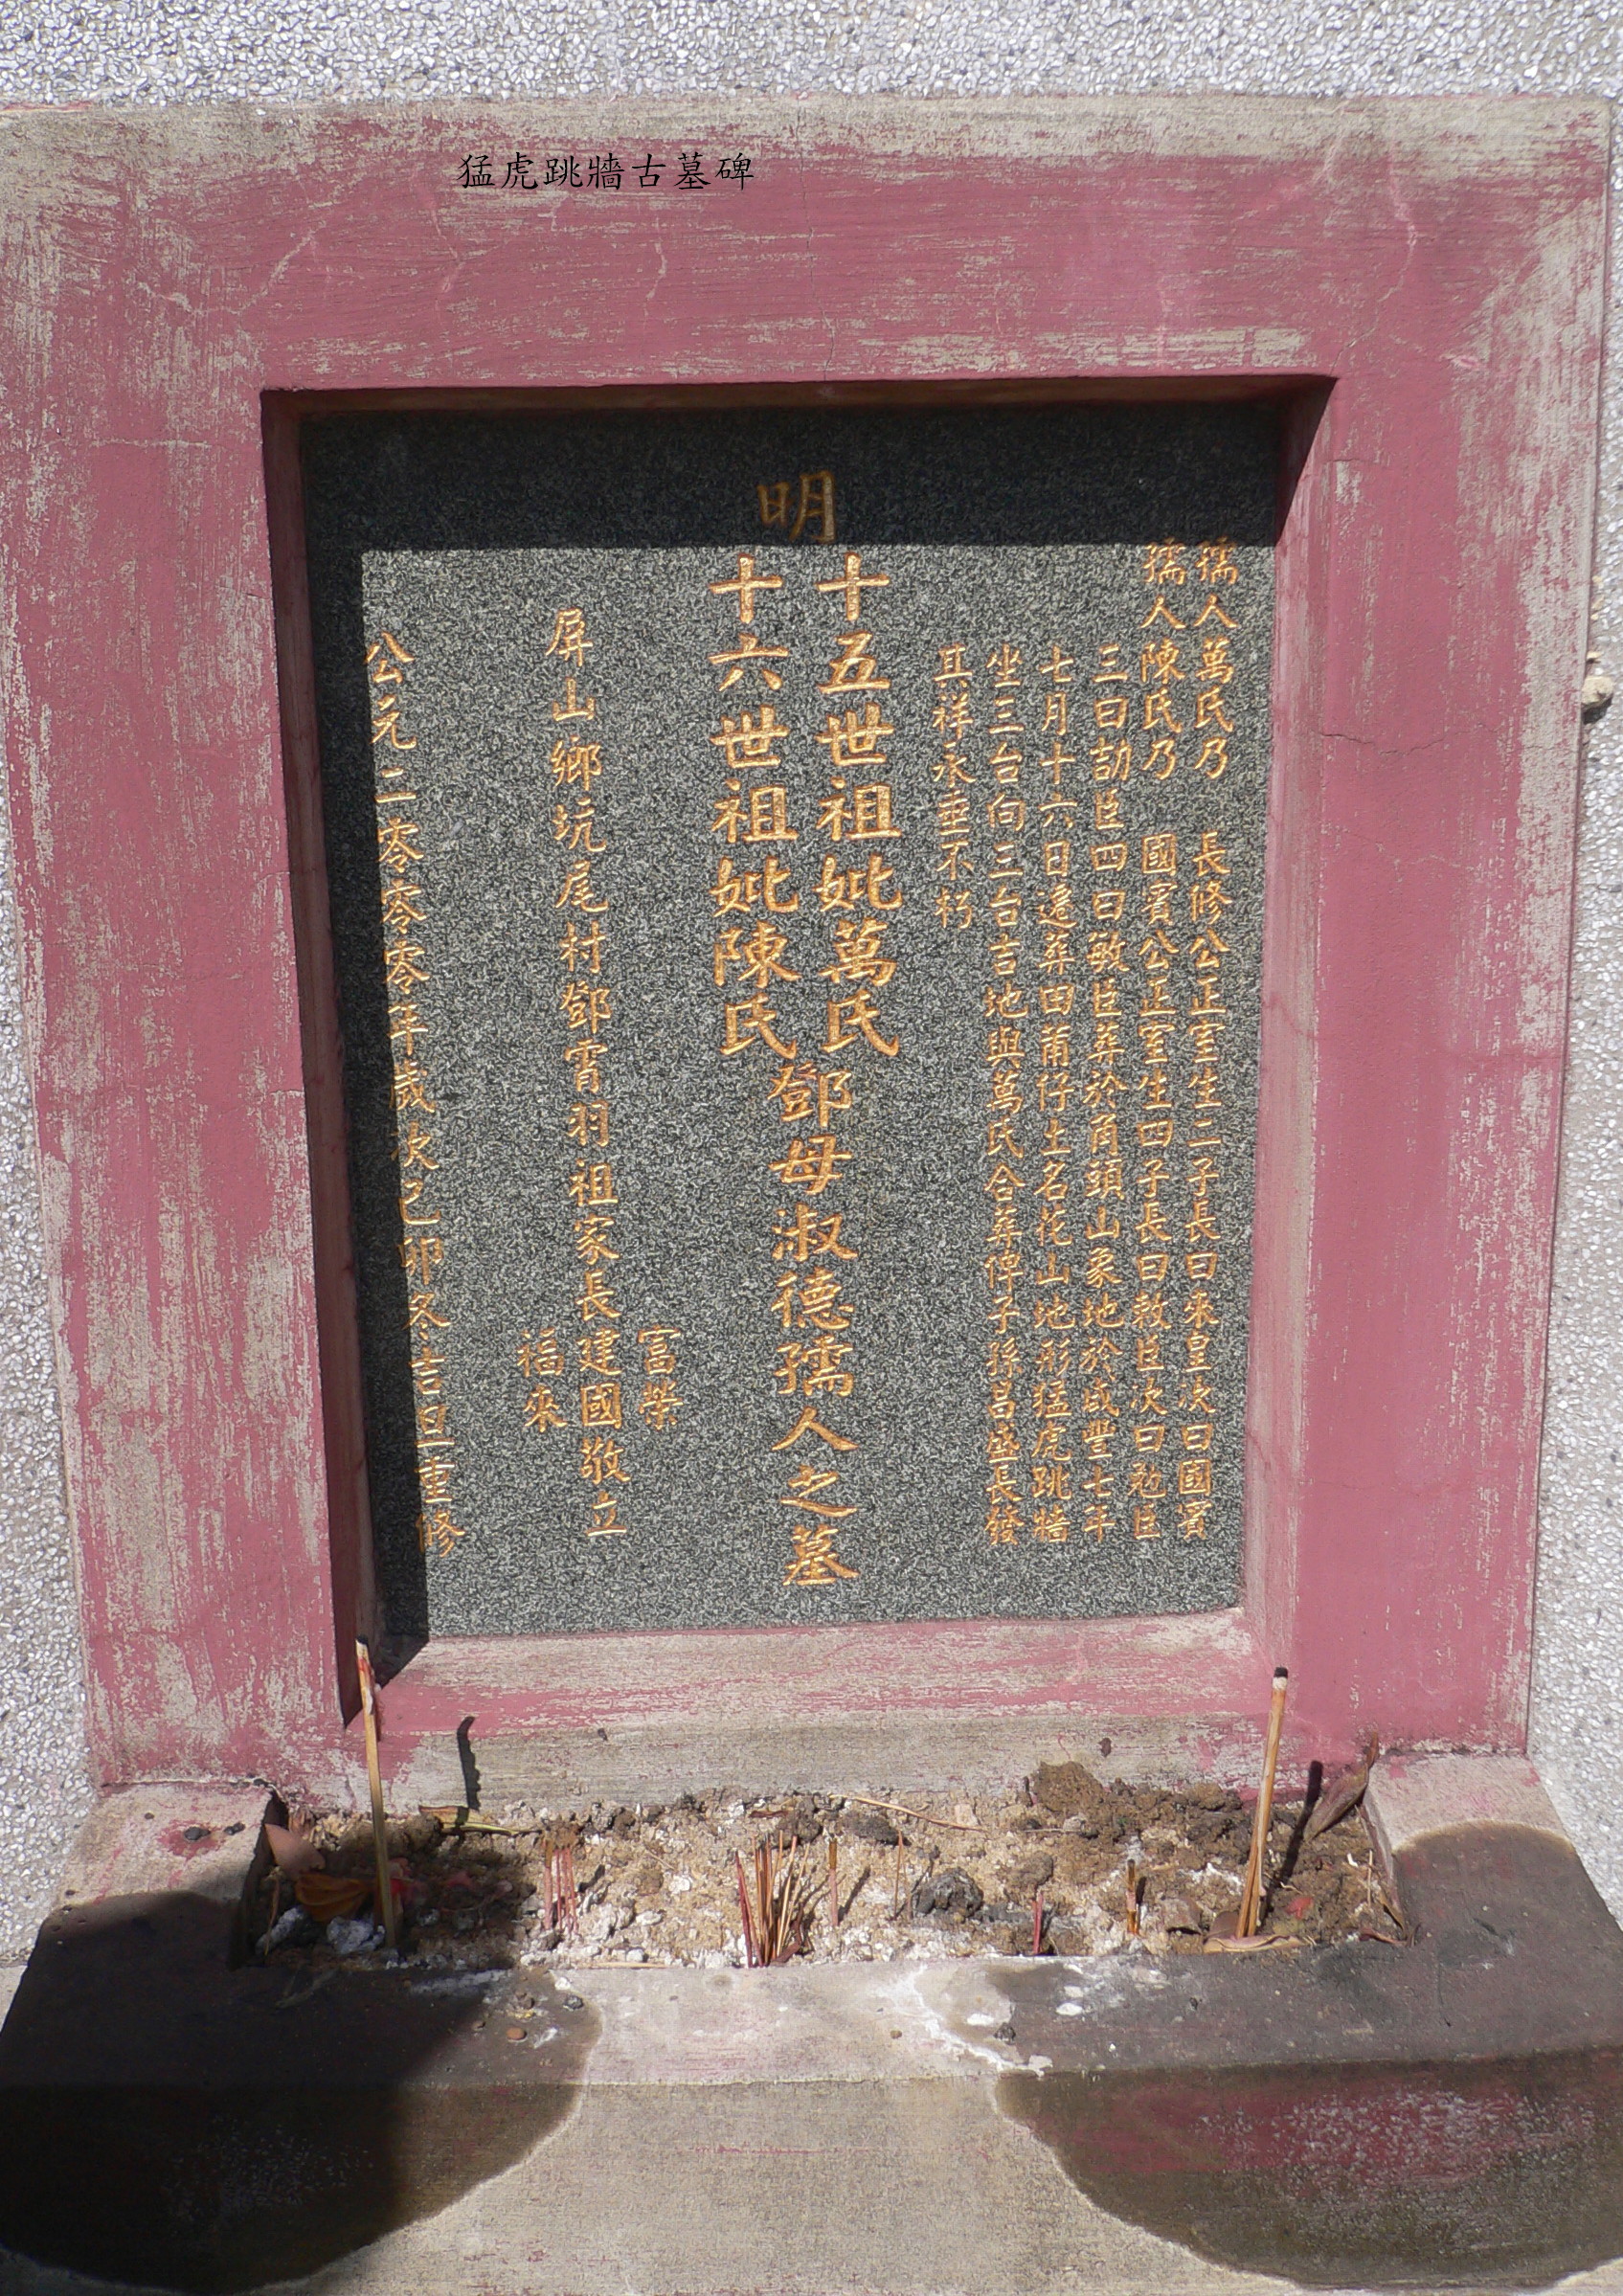 猛虎跳牆古墓碑
明
孺人萬氏乃 長修公正室生二子長曰朱皇次曰國賓
孺人陳氏乃 國賓公正室生四子長曰敕臣次曰勉臣
三曰劼臣四曰敏臣葬於角頭山象地於咸豐七年
七月十六日遷葬田莆仔土名花山地形猛虎跳牆
坐三台向三台吉地與萬氏合葬俾子孫昌盛長發
其祥永垂不朽
十五世祖妣萬氏
十六世祖妣陳氏
鄧母淑德孺人之墓
富榮
屏山鄉坑尾村鄧霄羽祖家長建國敬立
福來
公元二零零零年歲次己卯冬吉旦重修